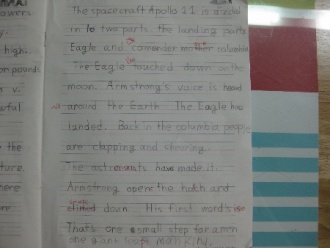 owers
high.
on pounds
n vi
wful
e
ture
here
s
The spacecraft Apollo 11 is
in to two parts the landing parts
Eagle and comander columbia
The Eagle touched down on the
moon. Armstrong's voice is head
around the Earth. The Eagle has
landed. Back in the columbia people
are clapping and
The have made it.
Armstrong opens the hatch and
down. His first word's
That's one small step for a man
one giant leap man kind.